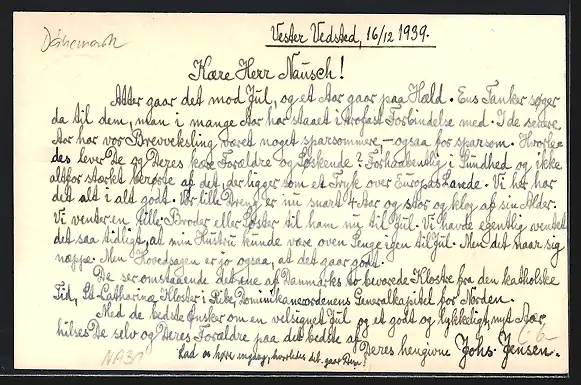 Dänemark
Vester Vedsted, 16/12 1939.
Kære Herr Nausch!
Atter gaar det mod Jul, og et Aar gaar paa Hæld. Ens Tanker søger
da til dem, man i mange Aar har staaet i trofast Forbindelse med. I de senere
Aar har vor Brevveksling været noget sparsommere, – ogsaa for sparsom. Hvorle-
des lever De og Deres kære Forældre og Søskende? Forhaabentlig i Sundhed og ikke
altfor stærkt berørte af det, der ligger som et Tryk over Europas Lande. Vi her har
det alt i alt godt. Vor lille Dreng er nu snart 4 Aar og stor og klog af sin Alder.
Vi venter en lille Broder eller Søster til ham nu til Jul. Vi havde egentlig ventet
det saa tidligt, at min Hustru kunde være oven Senge igen til Jul. Men det slaar sig
næppe. Men Hovedsagen er jo ogsaa, at det gaar godt.
De ser omstaaende det ene af Danmarks to bevarede Klostre fra den katholske
Tid, St. Catharinæ Kloster i Ribe, Dominikanerordenens Generalkapitel for Norden.
Med de bedste Ønsker om en velsignet Jul og et godt og lykkeligt, nyt Aar
hilses De selv og Deres Forældre paa det bedste af
Deres hengivne Johs. Jensen.
Lad os høre engang, hvorledes det gaar Dem!